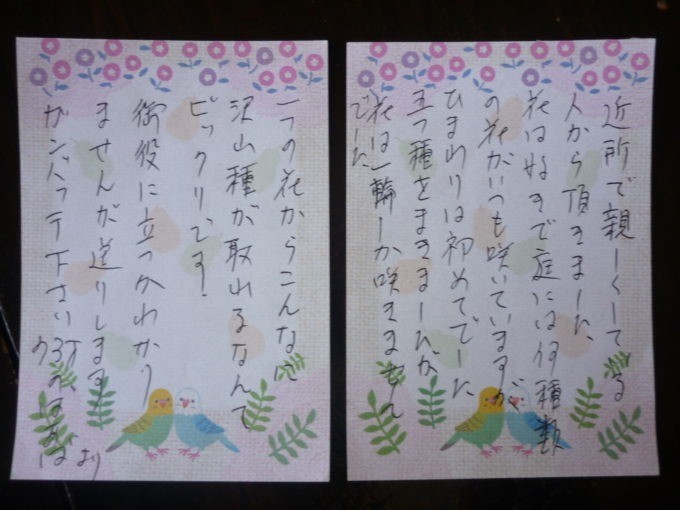 近所で親しくしてる
人から頂きました、
花は好きで庭には何種類
の花がいつも咲いていますが
ひまわりは初めてでした
五つ種をまきましたが
花は一輪しか咲きません
でした
一つの花からこんなに
沢山種が取れるなんて
ビックリです!
御役に立つかわかり
ませんが送りします
ガンバッテ下さい
より